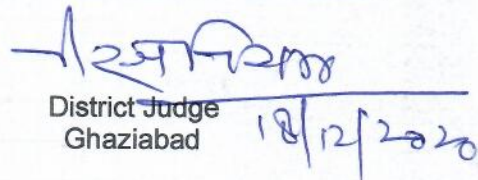 District Judge
Ghaziabad
18/12/2020